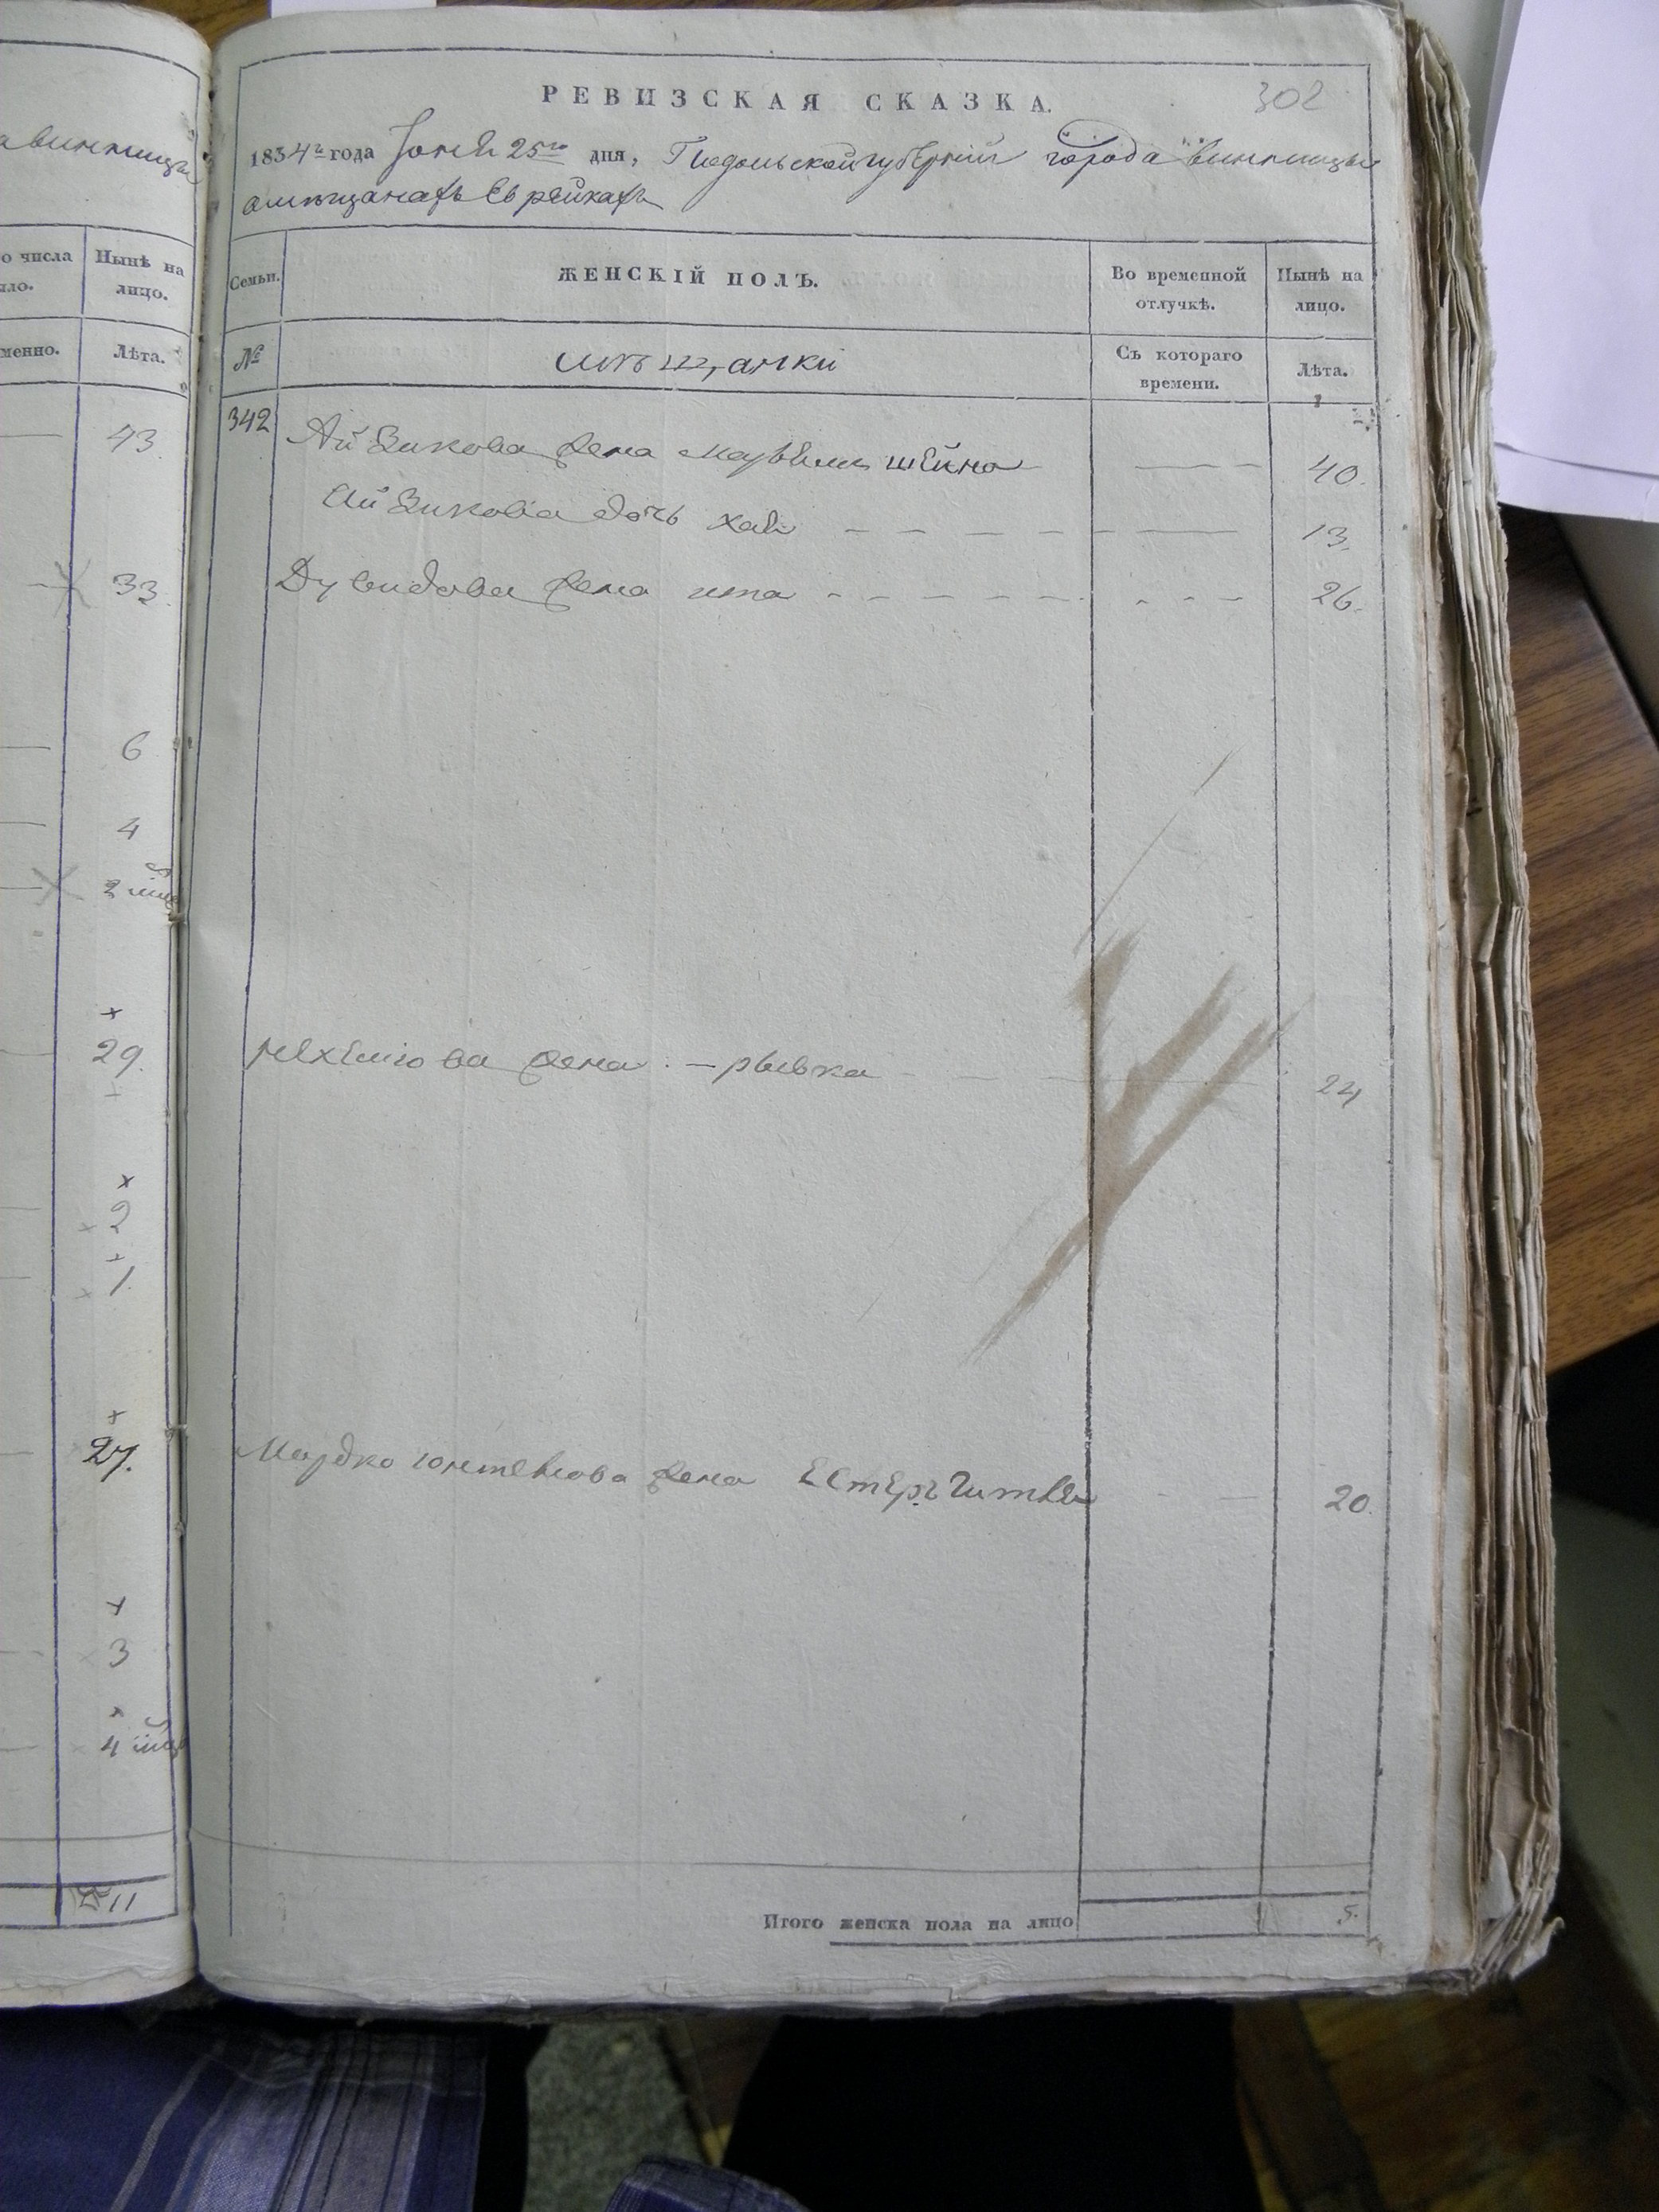 а винницы
о числа
ыло.
Нынѣ на
лицо.
менно.
Лѣта.
43.
33.
6
4
29.
2
1.
27.
3
4
11
РЕВИЗСКАЯ СКАЗКА.
302
1834го года Іюня 25го дня, Подольской губерніи города винницы
о мѣщанахъ Еврейкахъ
Семьи.
ЖЕНСКІЙ ПОЛЪ.
Во временной
отлучкѣ.
Нынѣ на
лицо.
№
мѣщанки
Съ котораго
времени.
Лѣта.
342 Айзикова жена шейна 40.
Айзикова дочь хая 13.
Дувидова жена ита 26.
жена рывка 24
Мордко юнтелиова жена Естеръ Гитля 20.
Итого женска пола на лицо 5.